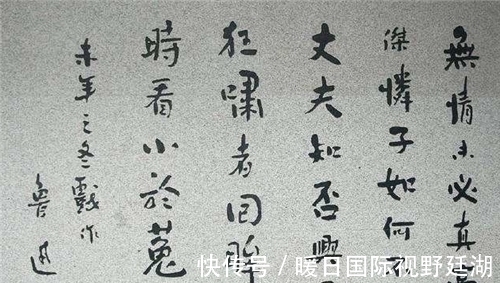 無情未必真
傑憐子如何不
丈夫知否興
狂嘯者回眸
時看小於菟
未年之冬戲作
魯迅
快传号 / 暖日国际视野廷湖